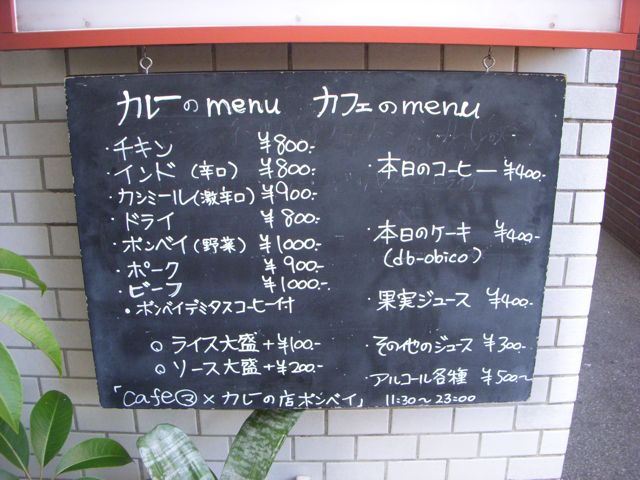 カレーのmenu
・チキン ¥800-
・インド（辛口） ¥800-
・カシミール（激辛口） ¥900-
・ドライ ¥800-
・ボンベイ（野菜） ¥1000-
・ポーク ¥900-
・ビーフ ¥1000-
・ボンベイデミタスコーヒー付
○ ライス大盛+¥100-
○ ソース大盛+¥200-
カフェのmenu
・本日のコーヒー ¥400-
・本日のケーキ ¥400-
(db-obico)
・果実ジュース ¥400-
・その他のジュース ¥300-
・アルコール各種 ¥500~
「cafe③×カレーの店ボンベイ」 11:30～23:00